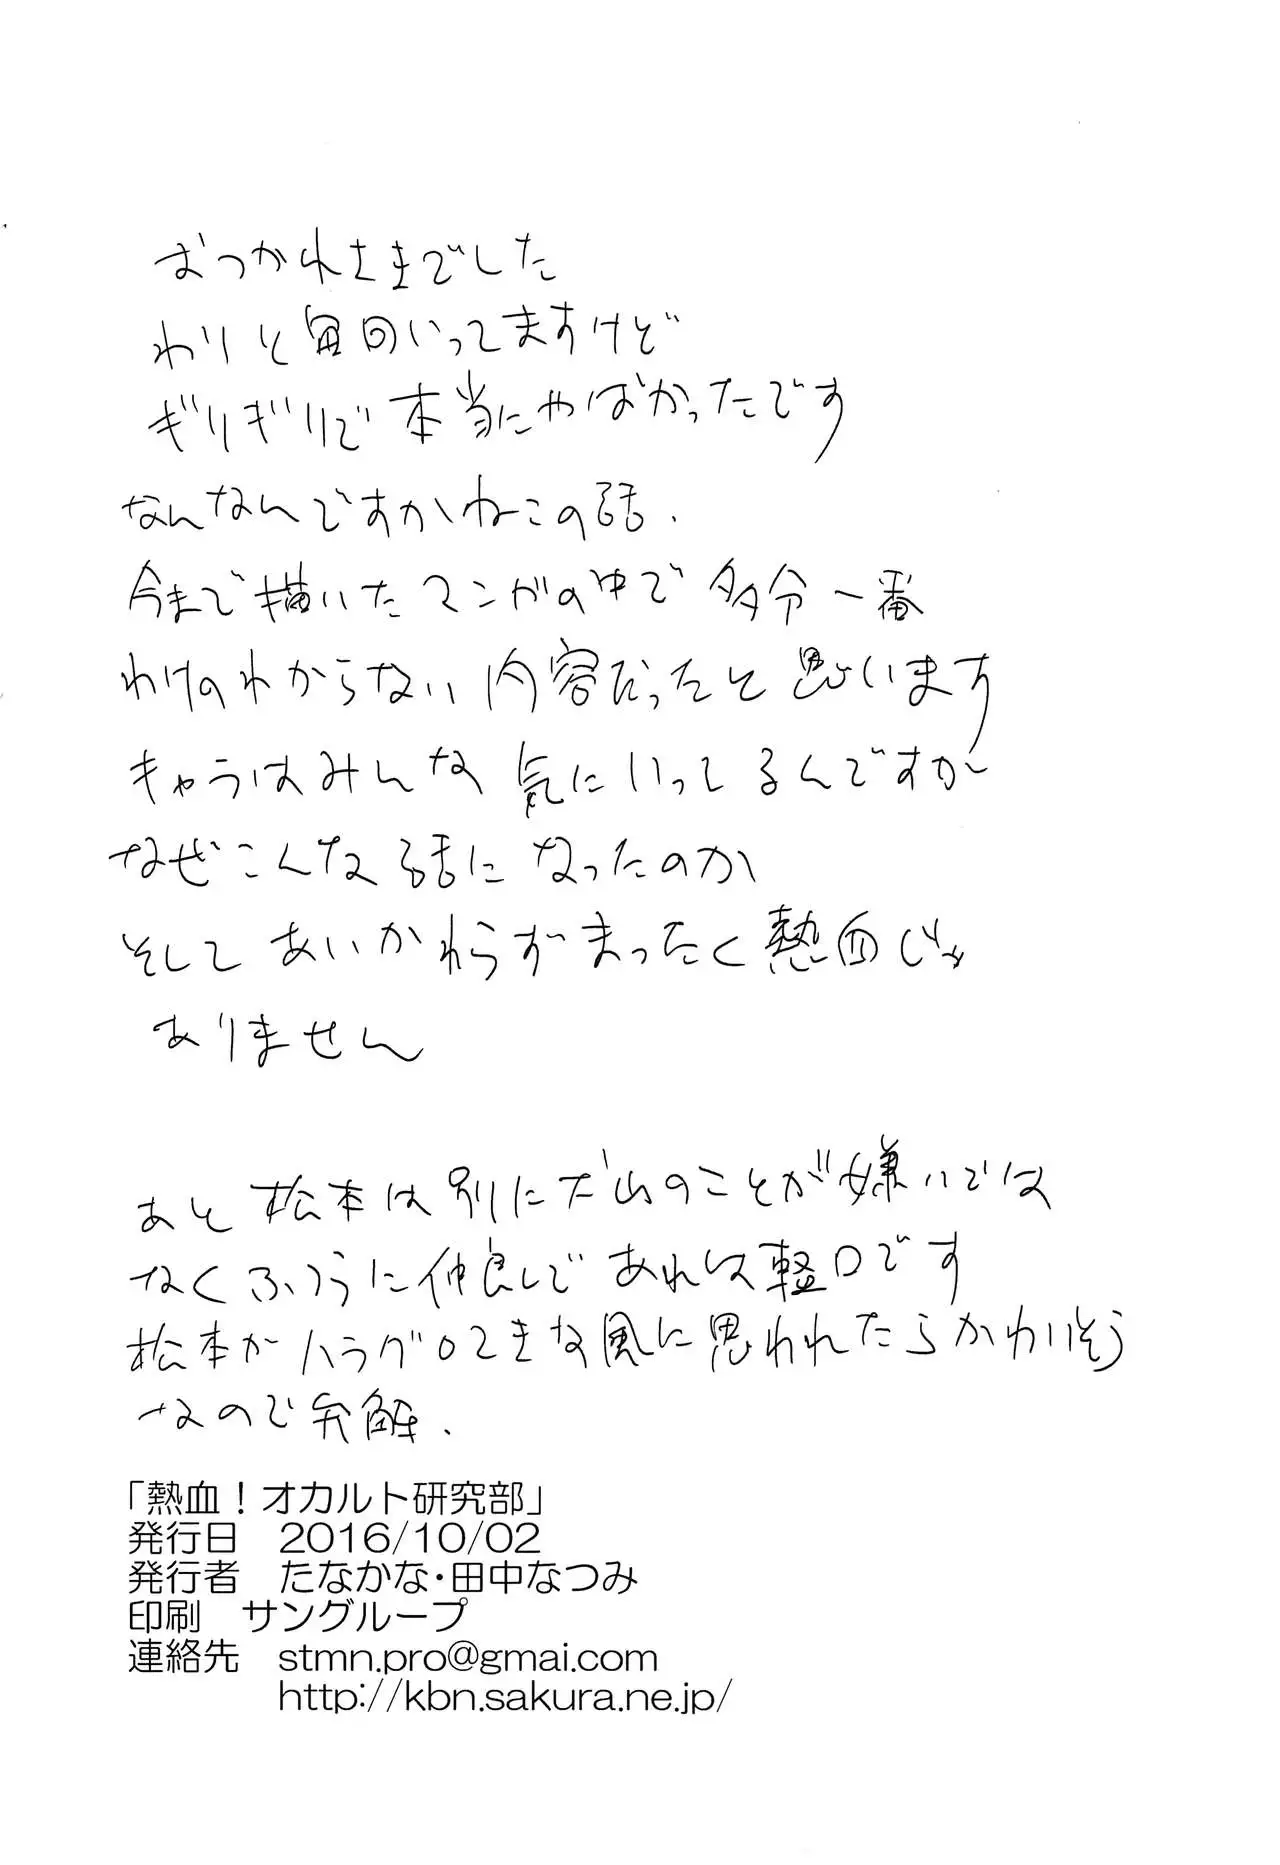 おつかれさまでした
わりと毎回いってますけど
ギリギリで本当にやばかったです
なんなんですかねこの話.
今まで描いたマンガの中で多分一番
わけのわからない内容だったと思います
キャラはみんな気にいってるんですが
なぜこんな話になったのか
そしてあいかわらずまったく熱血じゃ
ありません
あと松本は別に犬山のことが嫌いでは
なくふつうに仲良しであれは軽口です
松本がハラグロてきな風に思われたらかわいそう
なので弁解.
「熱血！オカルト研究部」
発行日　2016/10/02
発行者　たなかな・田中なつみ
印刷　サングループ
連絡先　stmn.pro@gmai.com
http://kbn.sakura.ne.jp/